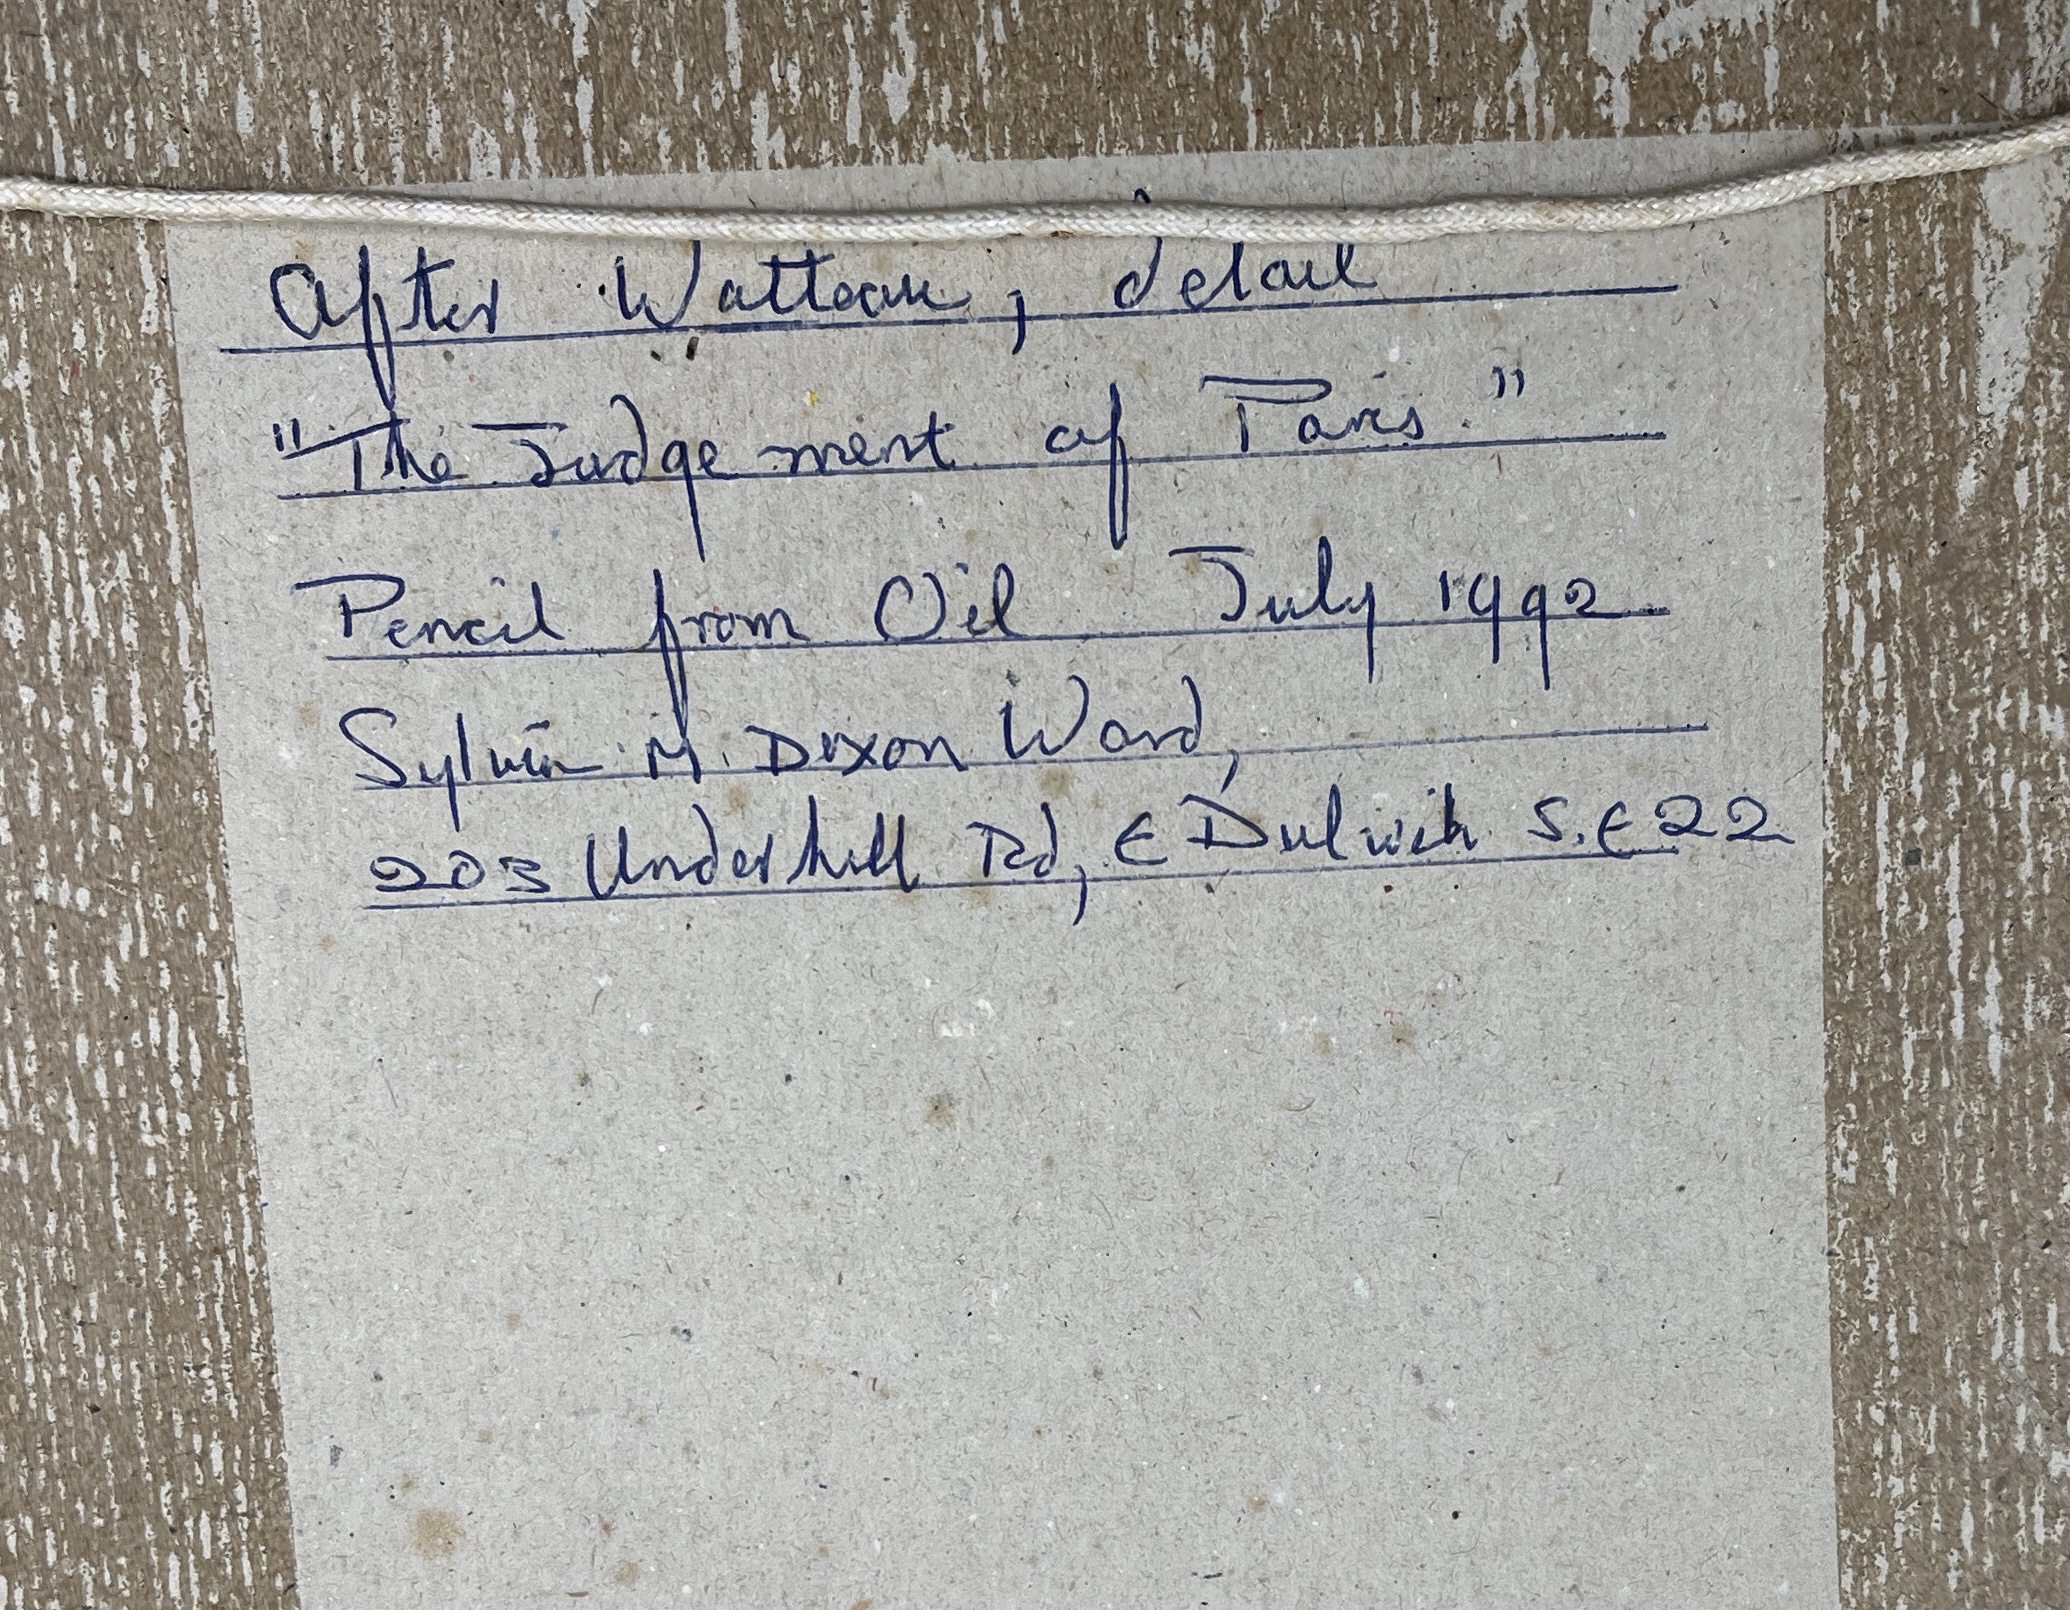 After Watteau, detail
"The Judgement of Paris"
Pencil from Oil July 1992
Sylvia M. Dixon Ward,
203 Underhill Rd, E Dulwich S.E 22